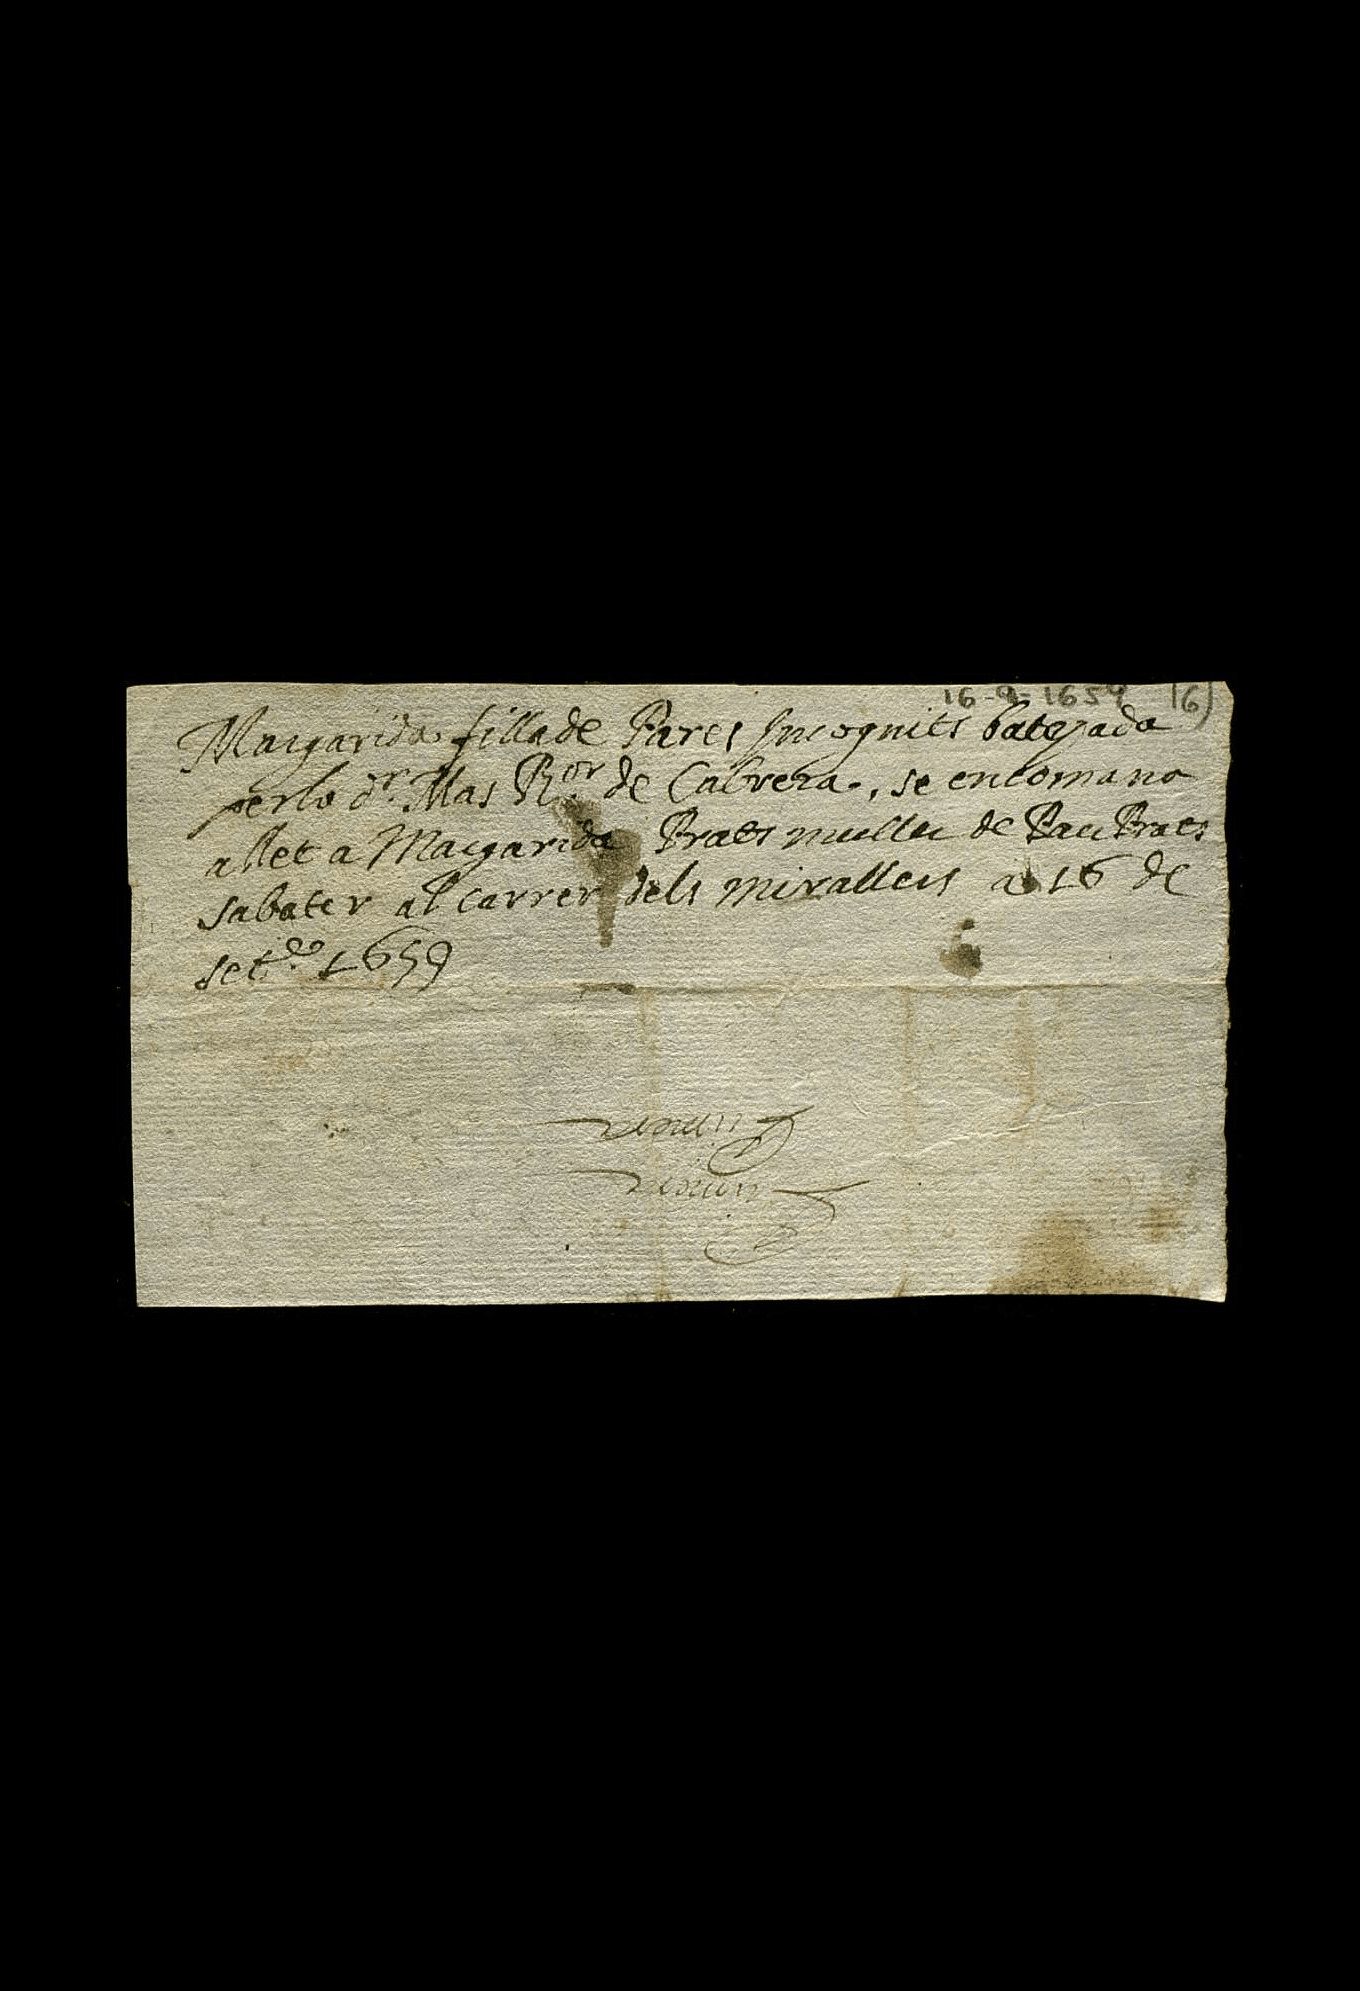 16-9-1659 16)
Margarida filla de Pares Incognits batejada
per lo dr. Mas Ror. de Cabrera, se encomana
a llet a Margarida Prats muller de Pau Prats
sabater al carrer dels mirallers a 16 de
set.e 1659